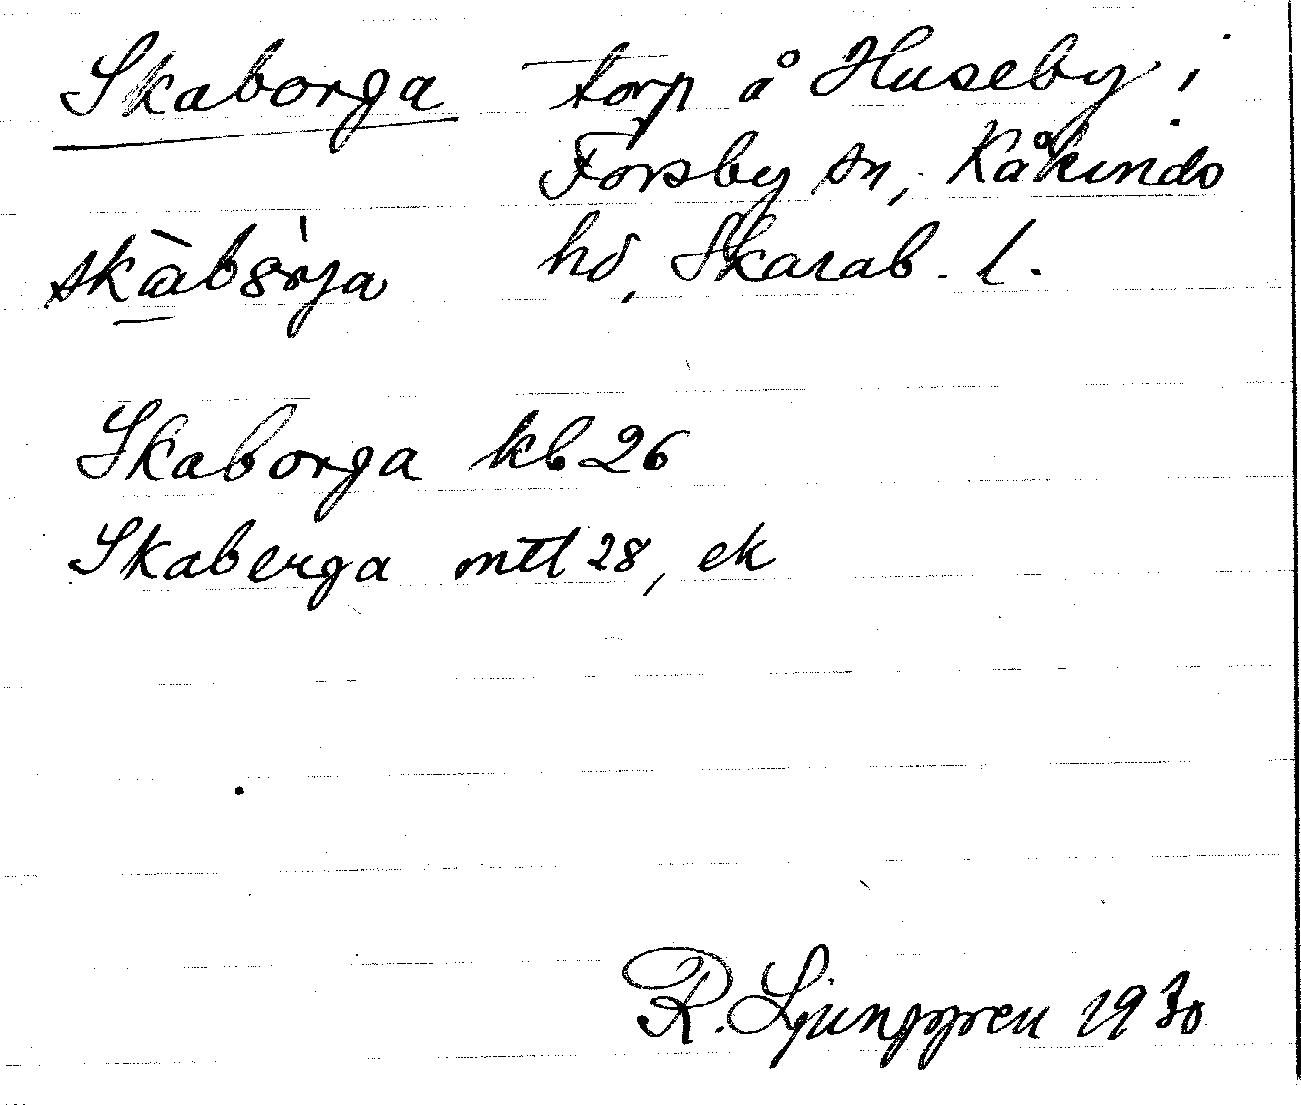 Skaborga torp å Huseby i
Forsby sn, Kåkinds
hd, Skarab. l.
skàb8̀rja
Skaborga kb 26
Skaberga mtl 28, ek
R. Ljunggren 1930